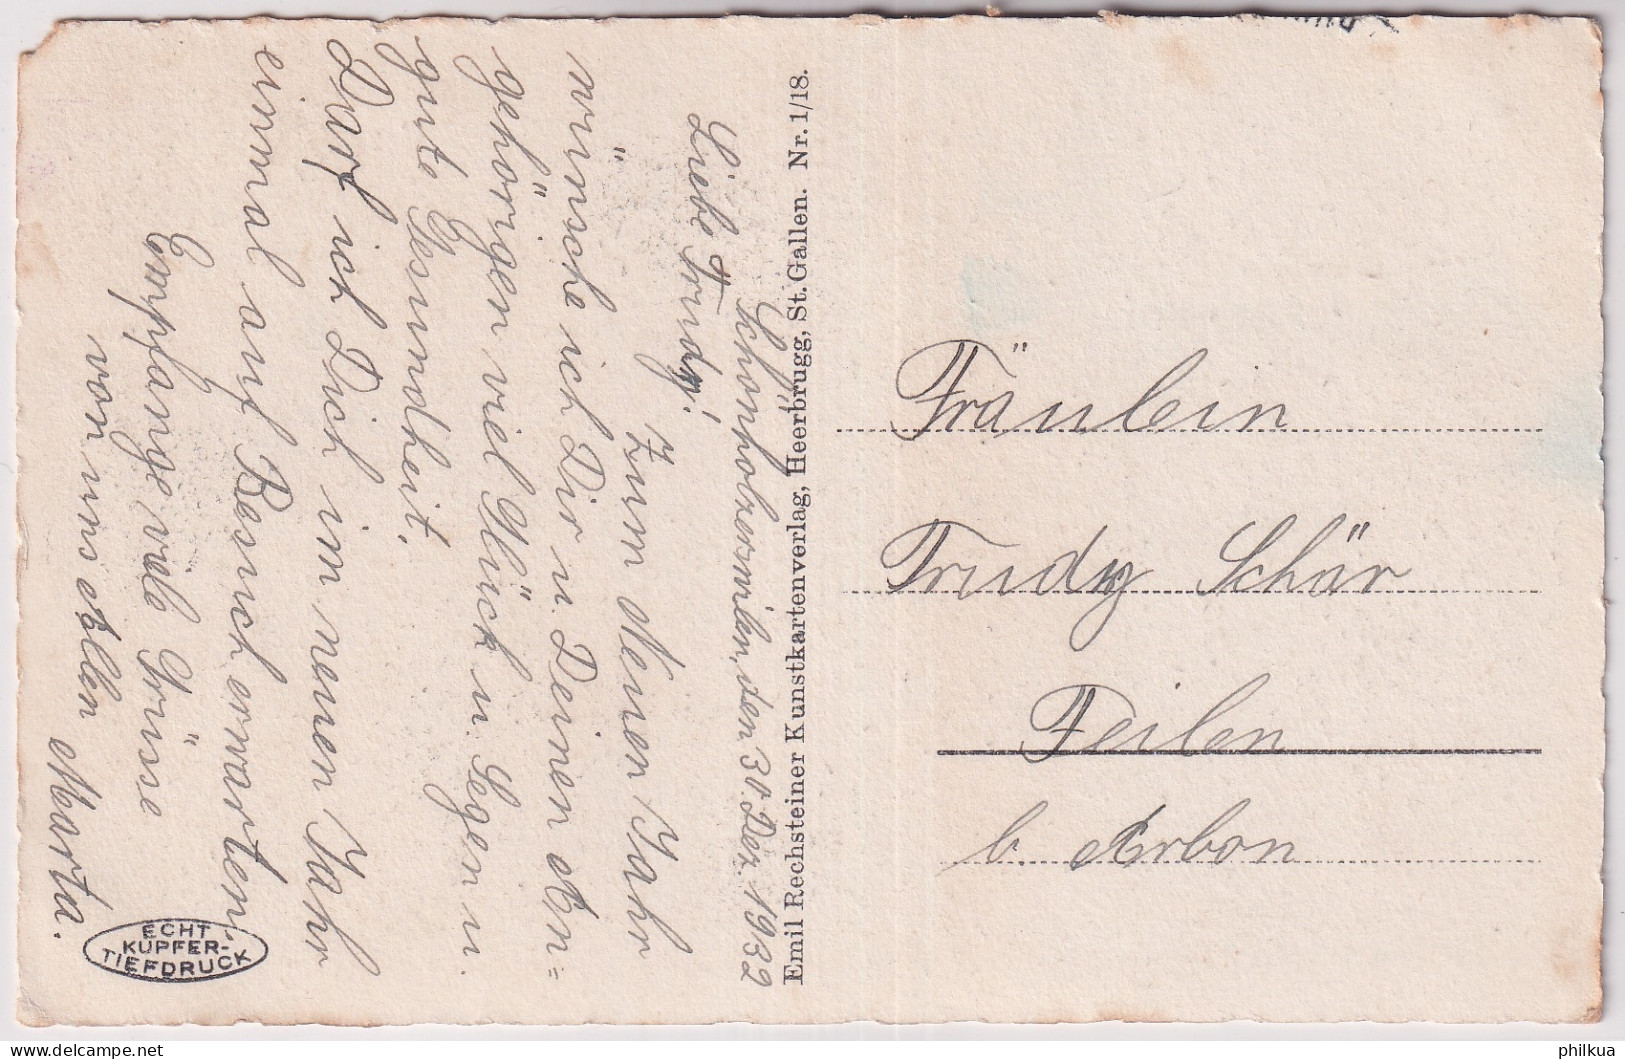 Schönholzerswilen, den 30. Dez. 1932
Liebe Trudy!
Zum Neuen Jahr
wünsche ich Dir u. Deinen An=
gehörigen viel Glück u. Segen u.
gute Gesundheit.
Darf ich Dich im neuen Jahr
einmal auf Besuch erwarten.
Empfange viele Grüsse
von uns Allen
Marta.
ECHT
KUPFER-
TIEFDRUCK
Emil Rechsteiner Kunstkartenverlag, Heerbrugg, St. Gallen. Nr. 1/18.
Fräulein
Trudy Schär
Feilen
b. Arbon
philkua